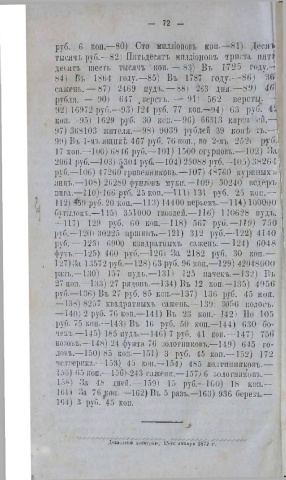 — 72 —
руб. 6 коп.—80) Сто милліоновъ коп.—81) Десять
тысячъ руб.— 82) Пятьдесятъ милліоновъ триста пять
десятъ шесть тысячъ коп.—83) Въ 1725 году.—
84) Въ 1864 году.—85) Въ 1787 году.—86) 36
сажень.—87) 2469 пудъ.—88) 263 дня.—89) 46
рубля. — 90) 647 верстъ. — 91) 562 версты.
92) 16972 руб.—93) 124 руб. 77 коп.—94) 63 руб. 45
коп.—95) 1629 руб. 30 коп.—96) 66313
97) 368103 жителя.—98) 9039 рублей 39 коп.
99) Въ 1-мъ ящикѣ 467 руб. 76 коп. во 2-мъ 252 руб.
17 коп.—100) 6846 руб.—101) 1500 огурцовъ.—102) За
2061 руб.—103) 5304 руб.—104) 25088 руб.—105) 38264
руб.—106) 47260 гривенниковъ.—107) 48760 куриныхъ
яицъ.—108) 26280 фунтовъ муки.—109) 50240
110) 166 руб. 25 коп.—111) 131 руб. 25 коп.—
112) 459 руб. 20 коп.—113) 14400 перьевъ.—114) 100000
бутылокъ.—115) 351000 гвоздей.—116) 110628 пудъ.
—117) 129 руб. 60 коп.—118) 567 руб.—119) 750
руб.—120) 30225 аршинъ.—121) 312 руб.—122) 4140
руб.— 123) 6900 квадратныхъ сажень.—124) 6048
футъ.—125) 460 руб.—126) За 2182 руб. 30 коп.—
127) За 13572 руб.—128) 58 руб. 96 коп.—129) 42048000
разъ.—130) 157 пудъ.—131) 125 пачекъ.—132) Въ
27 коп.—133) 27 рядовъ.—134) Въ 12 коп.—135) 4956
руб.—136) Въ 27 руб. 85 коп.—137) 136 руб. 45 коп.
—138) 8257 квадратныхъ сажень.—139) 3056 полосъ.
—140) 2 руб. 76 коп.—141) Въ 23 коп.—142) По 105
руб. 75 коп.—143) Въ 16 руб. 50 коп.—144) 630 бо-
чекъ.—145) 185 пудъ.—146) 7 руб. 41 коп.—147) 756
возовъ.—148) 24 фунта 76 золотниковъ.—149) 645 го-
довъ.—150) 85 коп.—151) 3 руб. 45 коп.—152) 172
четверика.—153) 45 коп.—154) 485 полтинниковъ.—
155) 65 коп.—156) 243 сажени.—157) 6 золотниковъ.—
158) За 48 дней.—159) 15 руб.—160) 18 коп.—
161) За 76 коп.—162) Въ 5 разъ.—163) 936 березъ.—
164) 3 руб. 45 коп.
Дозволено цензурою, января 1872 г.